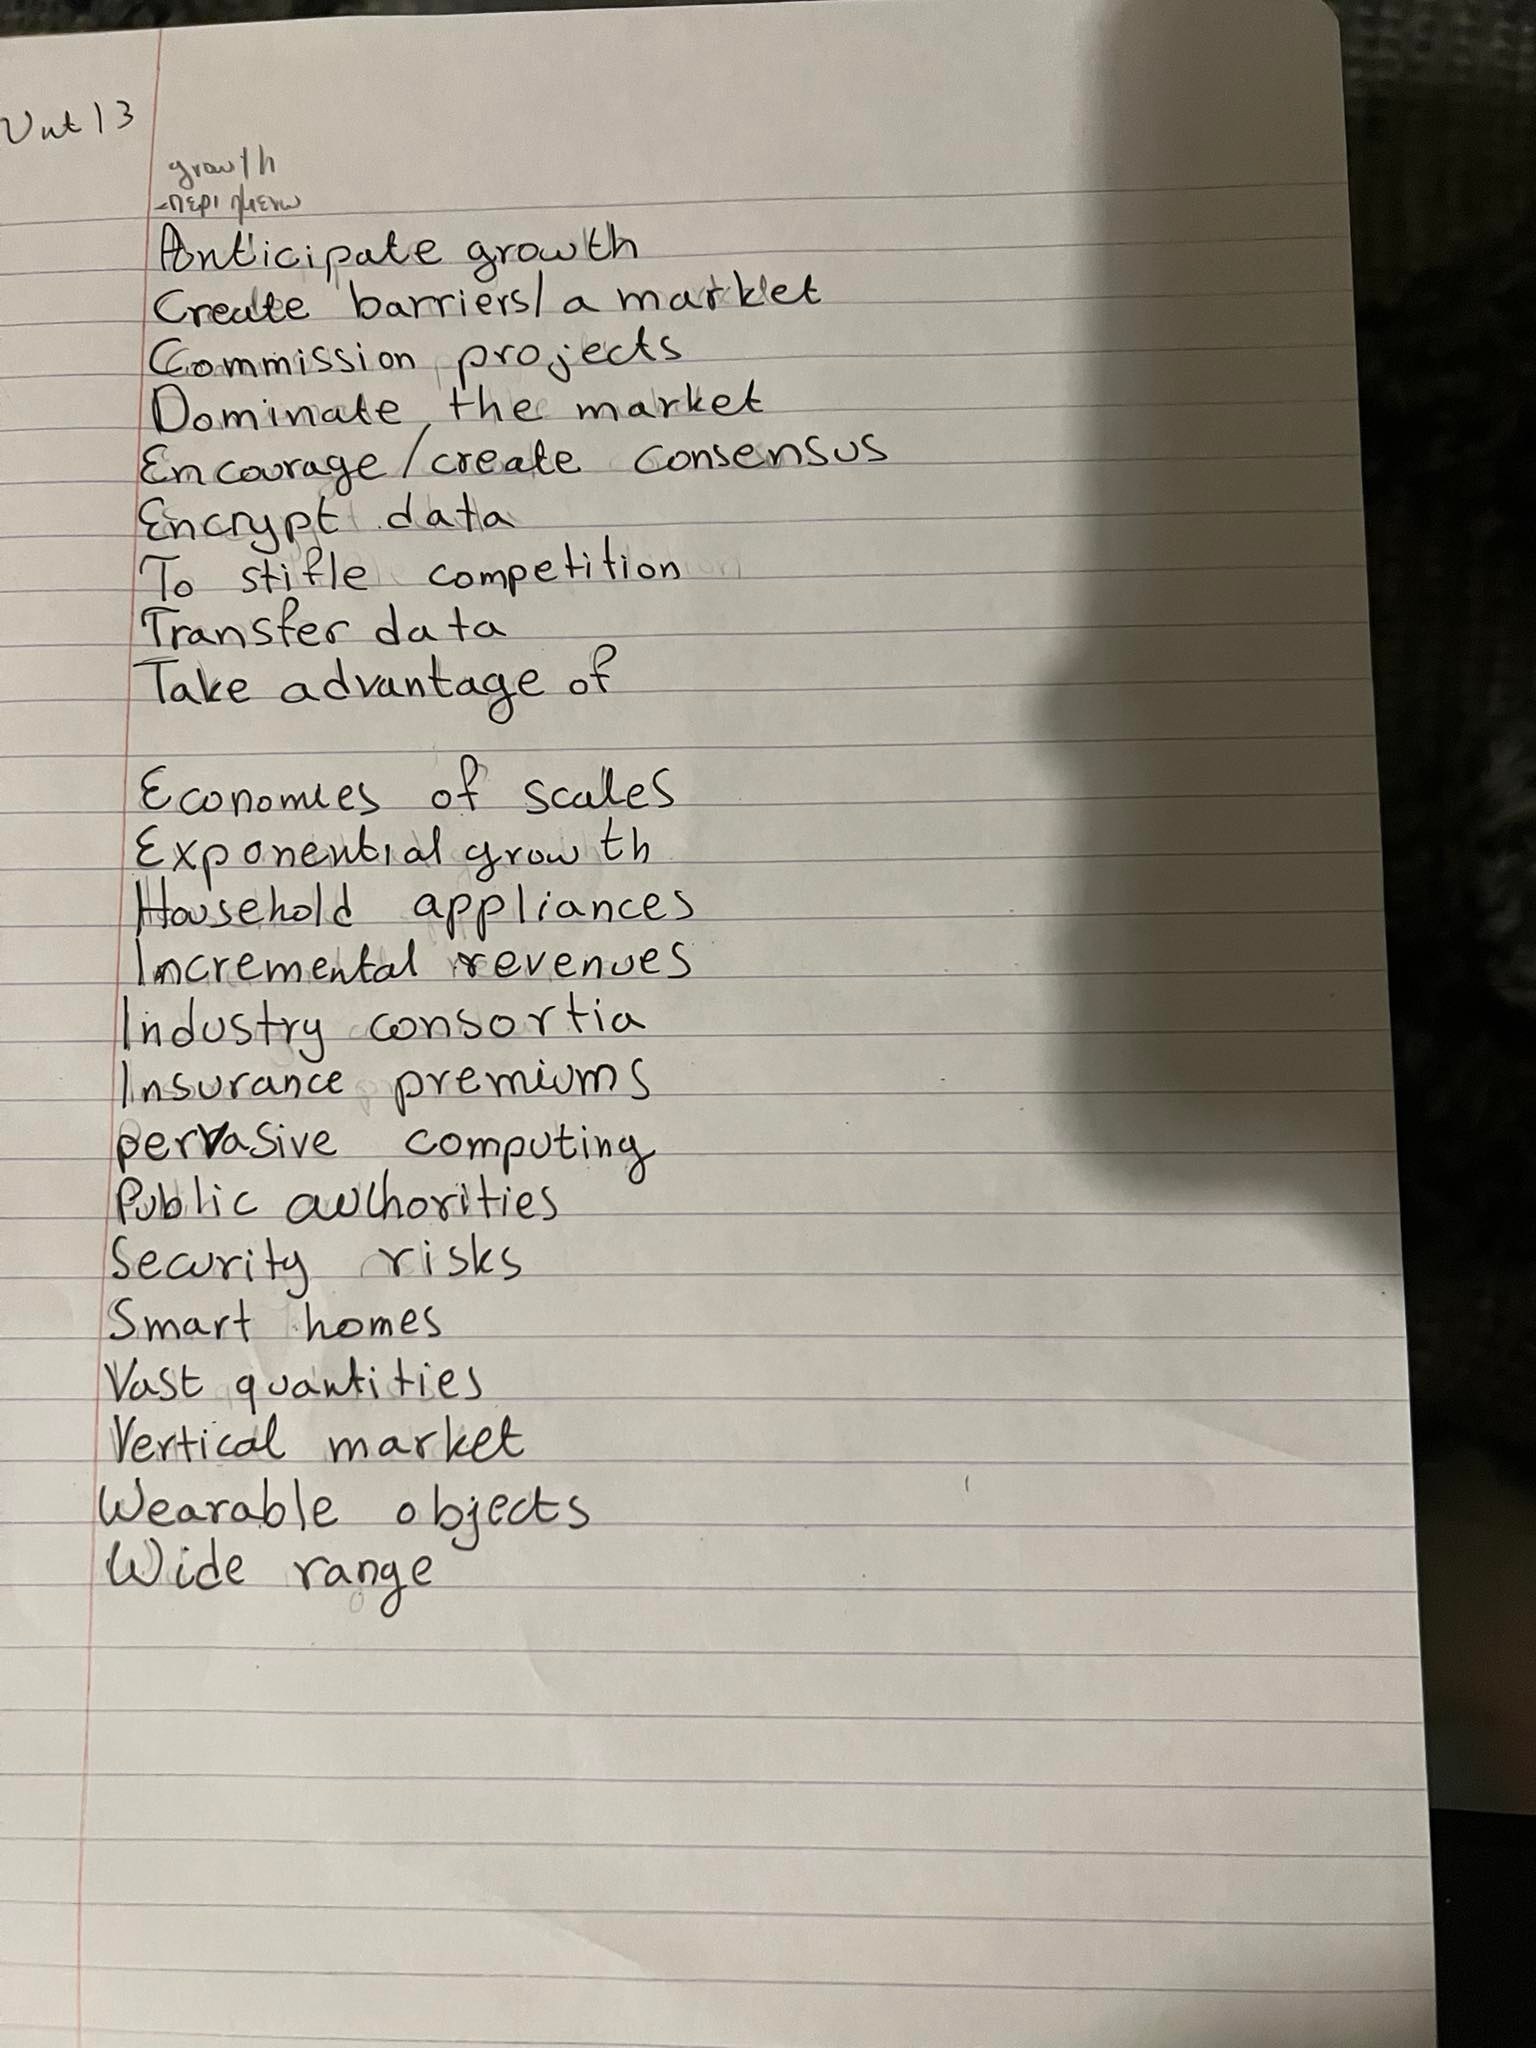 Unt 13
growth
-περιμένω
Anticipate growth
Create barriers/a market
Commission projects
Dominate the market
Encourage/create consensus
Encrypt data
To stifle competition
Transfer data
Take advantage of
Economies of scales
Exponential growth
Household appliances
Incremental revenues
Industry consortia
Insurance premiums
pervasive computing
Public authorities
Security risks
Smart homes
Vast quantities
Vertical market
Wearable objects
Wide range